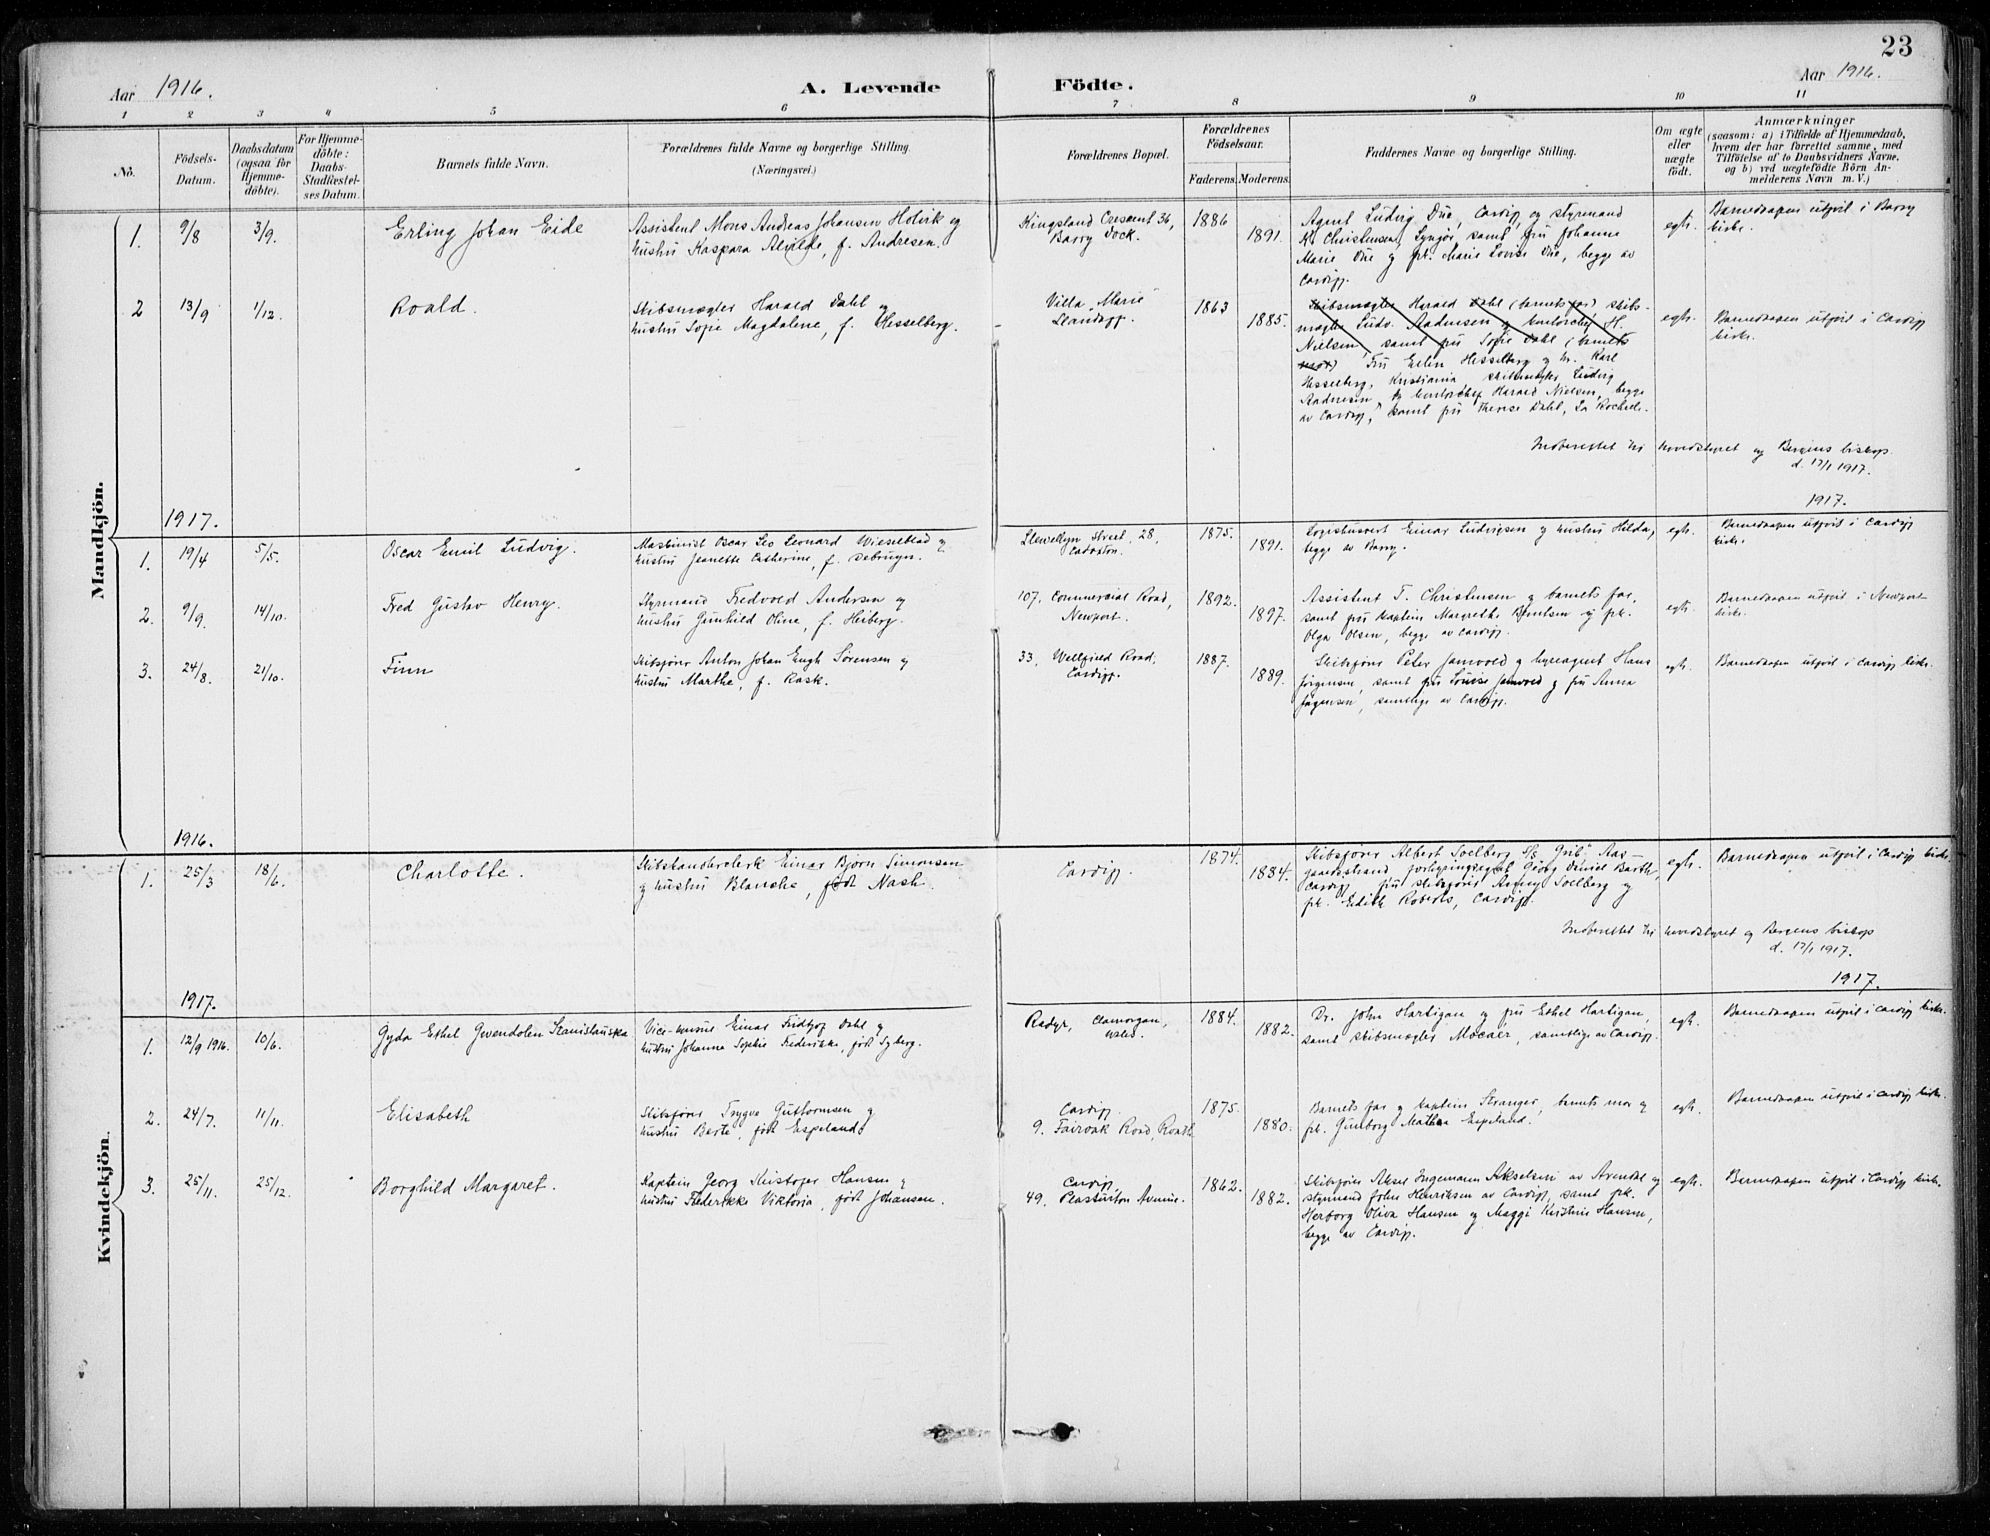 23
Aar 1916.
A. Levende Födte.
Aar 1916.
1 2 3 4 5 6 7 8 9 10 11
No.
Födsels-
Datum.
Daabsdatum
(ogsaa for
Hjemme-
döbte).
For Hjemme-
döbte:
Daabs-
Stadfæstel-
ses Datum.
Barnets fulde Navn.
Forældrenes fulde Navne og borgerlige Stilling
(Næringsvei.)
Forældrenes Bopæl.
Forældrenes
Födselsaar.
Faderens. Moderens.
Faddernes Navne og borgerlige Stilling.
Om ægte
eller
uægte
födt.
Anmærkninger
(saasom: a) i Tilfælde af Hjemmedaab,
hvem der har forrettet samme, med
Tilföielse af to Daabsvidners Navne,
og b) ved uægtefödte Börn An-
melderens Navn m. V.)
Mandkjön.
1. 9/8 3/9. Erling Johan Eide
Assistent Mons Andreas Johansen Holvik og
hustru Kaspara Alvilde, f. Andresen.
Kingsland Crescent 36,
Barry Dock.
1886 1891.
Agent Ludvig Due, Cardiff, og styrmand
K. Christensen, Lyngör, samt fru Johanne
Marie Due og frk. Marie Lovise Due, begge av
Cardiff.
egte.
Barnedaapen utført i Barry
kirke.
2 13/9 1/12. Roald.
Skibsmægler Harald Dahl og
hustru Sofie Magdalene, f. Hesselberg.
Villa Marie
Llandaff.
1863 1885.
Skibsmægler Harald Dahl (barnets far) skibs-
mægler Ludv. Andresen og kontorchef H.
Nielsen, samt fru Sofie Dahl (barnets
mor) Fru Ellen Hesselberg og hr. Karl
Hesselberg, Kristiania, skibsmægler Ludvig
Andresen, og kontorchef Harald Nielsen, begge
av Cardiff, samt fru Therese Dahl, La Rochelle.
egte.
Barnedaapen utført i Cardiff
kirke.
Indberettet til hovedstyret og Bergens biskop
d. 17/1 1917.
1917.
1917.
1. 19/4 5/5. Oscar Emil Ludvig.
Maskinist Oscar Leo Leonard Wieselblad og
hustru Jeanette Catherine, f. Debruyn.
Llewellyn Street, 28,
Cadoxton.
1875. 1891.
Logishusvert Einar Ludvigsen og hustru Hilda,
begge av Barry.
egte.
Barnedaapen utført i Cardiff
kirke.
2. 9/9. 14/10. Fred Gustav Henry.
Styrmand Fredvold Andersen og
hustru Gunhild Oline, f. Heiberg.
107, Commercial Road,
Newport.
1892. 1897.
Assistent T. Christensen og barnets far,
samt fru kaptein Margrethe Berntsen og frk.
Olga Olsen, begge av Cardiff.
egte.
Barnedaapen utført i Newport
kirke.
3. 24/8. 21/10. Finn
Skibsfører Anton Johan Engh Sørensen og
hustru Marthe, f. Rask.
33, Wellfield Road,
Cardiff.
1887. 1889.
Skibsfører Peter Jamvold og hyreagent Hans
Jørgensen, samt fru Louise Jamvold og fru Anna
Jørgensen, samtlige av Cardiff.
egte.
Barnedaapen utført i Cardiff kirke.
1916.
Kvindekjön.
1. 25/3 18/6. Charlotte.
Skibshandlerclerk Einar Bjørn Simonsen
og hustru Blanche, født Nash.
Cardiff.
1874. 1884.
Skibsfører Albert Soelberg S/S "Grib" Aas-
gaardstrand, forhyringsagent Georg Daniel Barth,
Cardiff, fru skibsfører Soelberg og
frk. Edith Roberts, Cardiff.
egte.
Barnedaapen utført i Cardiff kirke.
Indberettet til hovedstyret og Bergens biskop
d. 17/1 1917.
1917.
1917.
1. 12/9 1916. 10/6. Gyda Ethel Gwendolen Stanislauska
Vice-konsul Einar Fridtjof Dahl og
hustru Johanna Sophie Frederikke, født Syberg.
Radyr, Glamorgan,
Wales.
1884. 1882.
Dr. John Hartigan og fru Ethel Hartigan,
samt skibsmægler Mocaër, samtlige av Cardiff.
egte.
Barnedaapen utført i Cardiff kirke.
2. 24/7. 11/11. Elisabeth
Skibsfører Trygve Guttormsen og
hustru Berte, født Espeland.
Cardiff.
9. Fairoak Road, Roath
1875. 1880.
Barnets far og kaptein Stranger, barnets mor og
frk. Gunborg Mathea Espeland.
egte.
Barnedaapen utført i Cardiff kirke.
3. 25/11. 25/12. Borghild Margaret.
Kaptein Georg Kristofer Hansen og
hustru Frederikke Viktoria, født Johansen.
Cardiff.
49. Plasturton Avenue.
1862. 1882.
Skibsfører Aksel Ingemann Akselsen av Arendal og
styrmand John Henriksen av Cardiff, samt frk.
Herborg Oliva Hansen og Maggi Kristine Hansen,
begge av Cardiff.
egte.
Barnedaapen utført i Cardiff kirke.